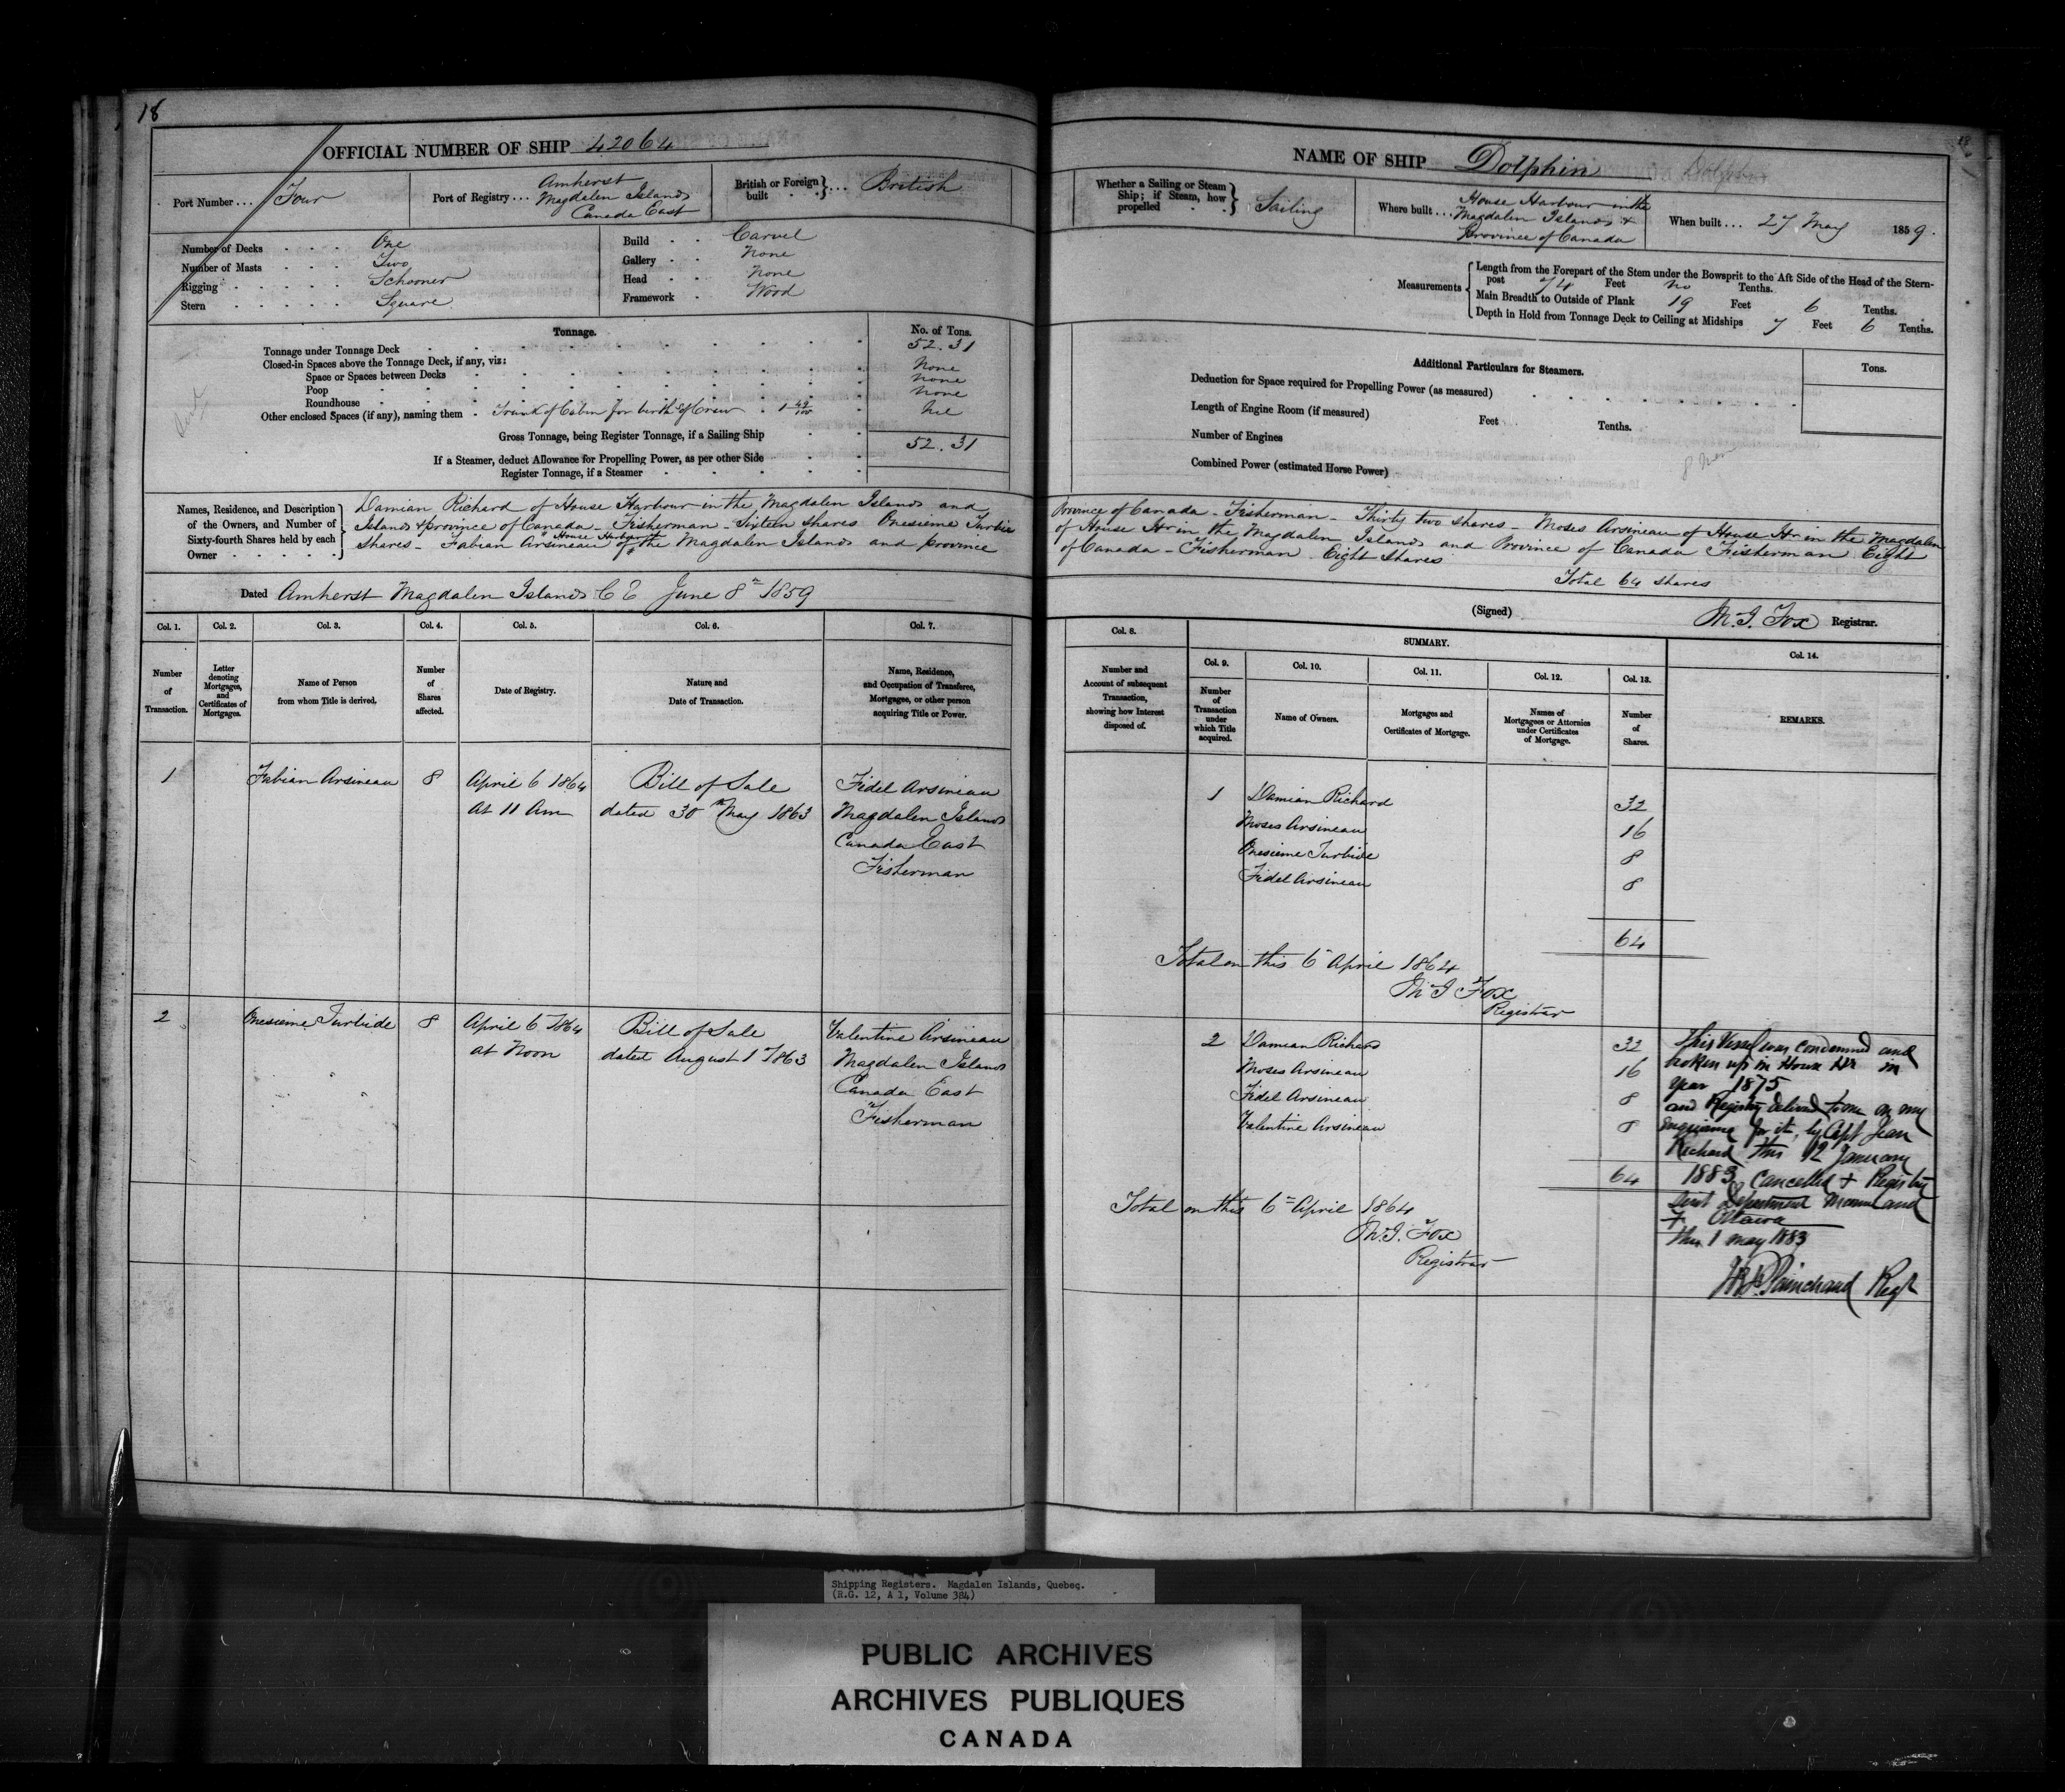 18
OFFICIAL NUMBER OF SHIP 42064
Port Number ... Four
Port of Registry ... Amherst
Magdalen Islands
Canada East
British or Foreign built } ... British
Number of Decks One
Number of Masts Two
Rigging Schooner
Stern Square
Build Carvel
Gallery None
Head None
Framework Wood
Tonnage. No. of Tons.
Tonnage under Tonnage Deck 52.31
Closed-in Spaces above the Tonnage Deck, if any, viz:
Space or Spaces between Decks None
Poop None
Roundhouse None
Other enclosed Spaces (if any), naming them Trunk of Cabin for birth of Crew 1 49/100 Nil
Gross Tonnage, being Register Tonnage, if a Sailing Ship 52.31
If a Steamer, deduct Allowance for Propelling Power, as per other Side
Register Tonnage, if a Steamer
Names, Residence, and Description of the Owners, and Number of Sixty-fourth Shares held by each Owner
Damian Richard of House Harbour in the Magdalen Islands and
Islands & province of Canada - Fisherman - Sixteen shares Onesieme Turbide
House Harbour in
shares - Fabian Arsineau of the Magdalen Islands and province
Dated Amherst Magdalen Islands C E June 8th 1859
Col. 1. Col. 2. Col. 3. Col. 4. Col. 5. Col. 6. Col. 7.
Number of Transaction.
Letter denoting Mortgages, and Certificates of Mortgages.
Name of Person from whom Title is derived.
Number of Shares affected.
Date of Registry.
Nature and Date of Transaction.
Name, Residence, and Occupation of Transferee, Mortgagee, or other person acquiring Title or Power.
1 Fabian Arsineau 8 April 6 1864 Bill of Sale Fidel Arsineau
at 11 Am dated 30th May 1863 Magdalen Islands
Canada East
Fisherman
2 Onesieme Turbide 8 April 6 1864 Bill of Sale Valentine Arsineau
at Noon dated August 1 1863 Magdalen Islands
Canada East
Fisherman
18
NAME OF SHIP Dolphin
Whether a Sailing or Steam Ship; if Steam, how propelled } Sailing
Where built ... House Harbour in the
Magdalen Islands &
Province of Canada
When built ... 27 May 1859.
Measurements
Length from the Forepart of the Stem under the Bowsprit to the Aft Side of the Head of the Stern-
post 74 Feet no Tenths.
Main Breadth to Outside of Plank 19 Feet 6 Tenths.
Depth in Hold from Tonnage Deck to Ceiling at Midships 7 Feet 6 Tenths.
Additional Particulars for Steamers. Tons.
Deduction for Space required for Propelling Power (as measured)
Length of Engine Room (if measured) Feet Tenths.
Number of Engines
Combined Power (estimated Horse Power)
8 men
Province of Canada - Fisherman - Thirty two shares - Moses Arsineau of House Hr in the Magdalen
of House Hr in the Magdalen Islands and Province of Canada Fisherman Eight
of Canada - Fisherman Eight Shares
Total 64 shares
(Signed) M. J. Fox Registrar.
Col. 8. SUMMARY. Col. 14.
Col. 9. Col. 10. Col. 11. Col. 12. Col. 13.
Number and Account of subsequent Transaction, showing how Interest disposed of.
Number of Transaction under which Title acquired.
Name of Owners.
Mortgages and Certificates of Mortgage.
Names of Mortgagees or Attornies under Certificates of Mortgage.
Number of Shares.
REMARKS.
1 Damian Richard 32
Moses Arsineau 16
Onesieme Turbide 8
Fidel Arsineau 8
64
Total on this 6th April 1864
M J Fox
Registrar
2 Damian Richard 32
Moses Arsineau 16
Fidel Arsineau 8
Valentine Arsineau 8
64
Total on this 6th April 1864
M. J. Fox
Registrar
This Vessel was condemned and
broken up in House Hr in
year 1875
and Registry delivered to me on my
enquiring for it, by Capt Jean
Richard this 12 January
1883 Cancelled & Registry
sent Department Marine and
F. Ottawa
this 1 may 1883
Painchaud Regr
Shipping Registers. Magdalen Islands, Quebec.
(R.G. 12, A 1, Volume 384)
PUBLIC ARCHIVES
ARCHIVES PUBLIQUES
CANADA